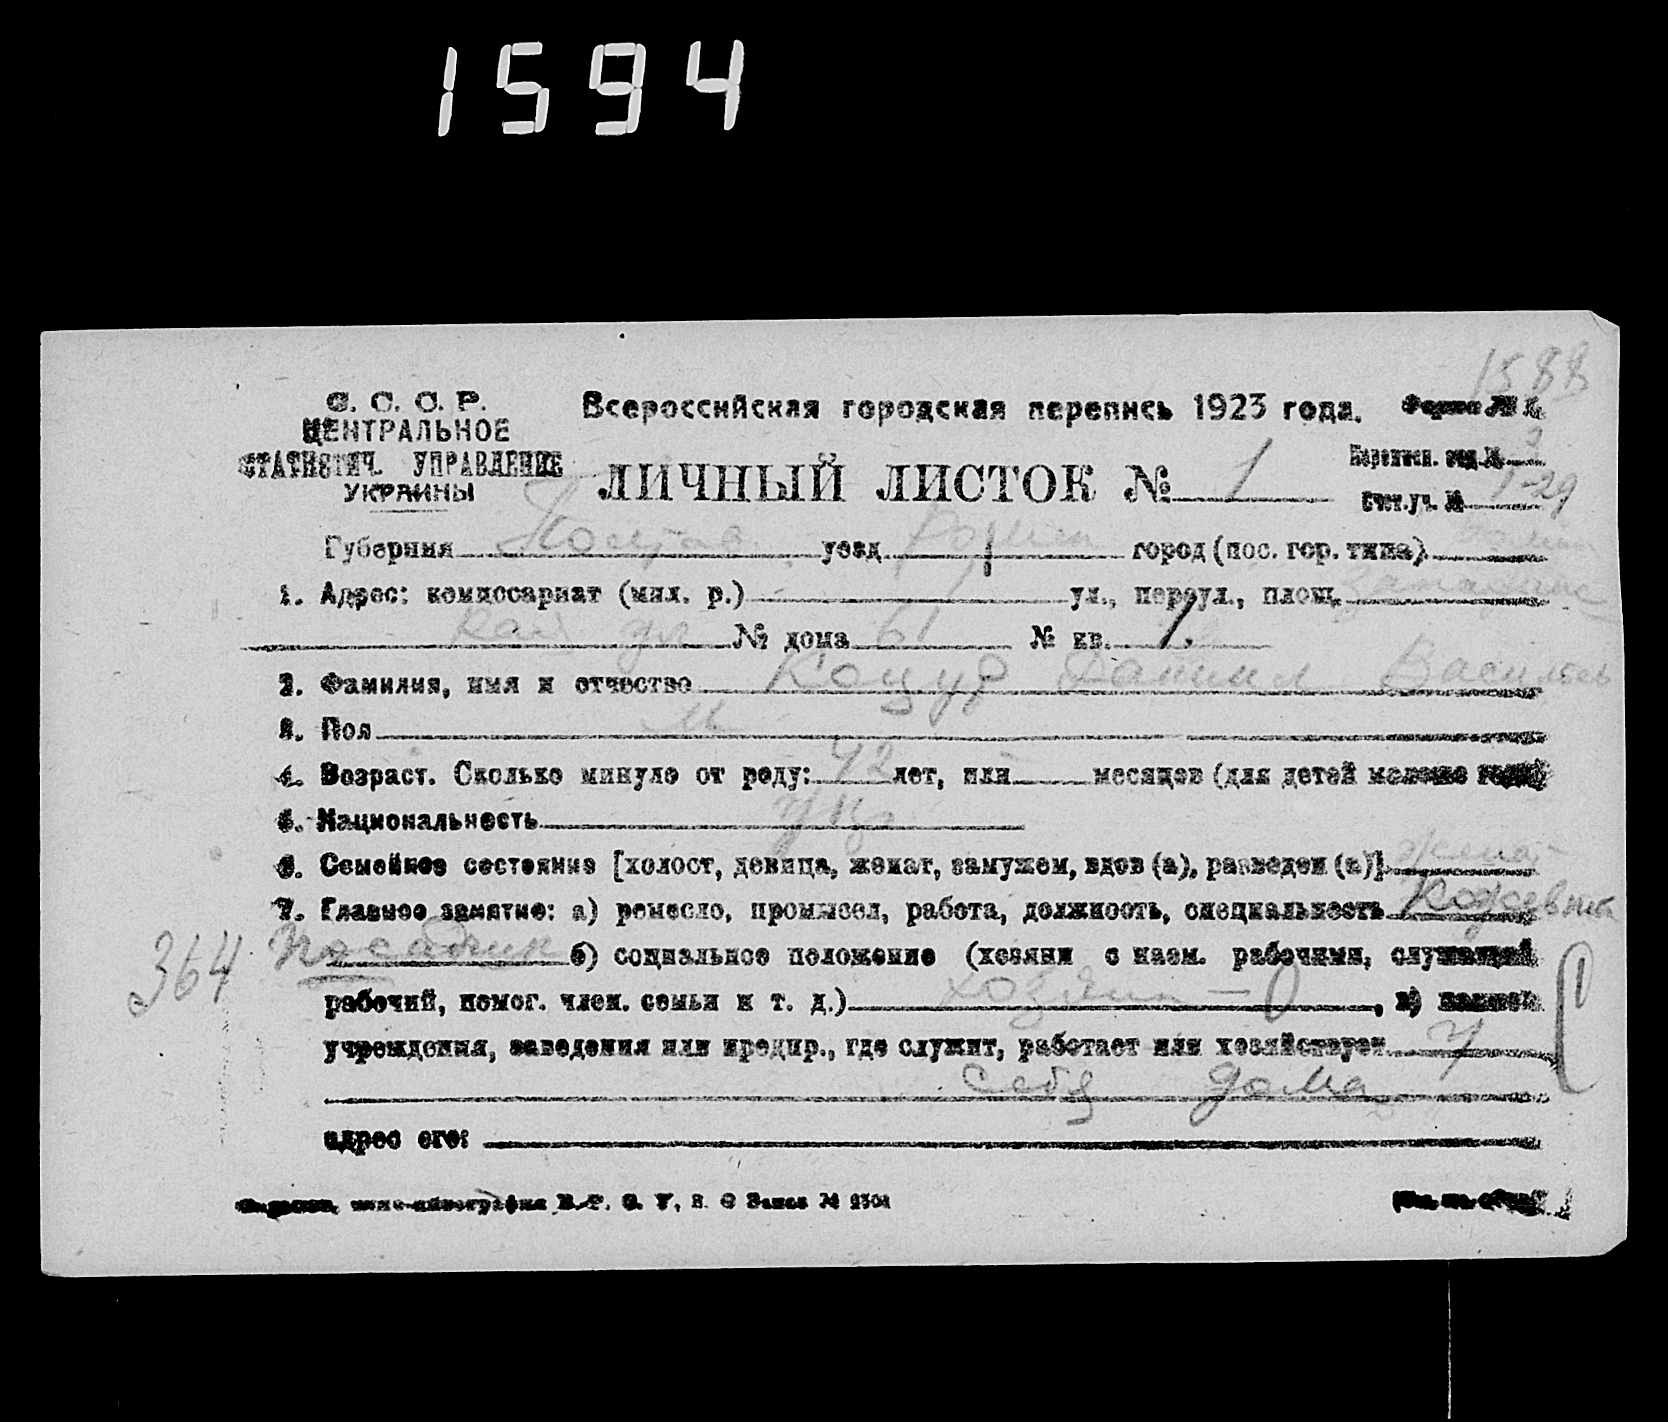 1594
1588
С. С. С. Р.
ЦЕНТРАЛЬНОЕ
СТАТИСТИЧ. УПРАВЛЕНИЕ
УКРАИНЫ
Всероссийская городская перепись 1923 года.
Форма № 1.
ЛИЧНЫЙ ЛИСТОК № 1
Переписн. отд. №
Счет. уч. № 29
Губерния Полтав уезд Ромен город (пос. гор. типа)
1. Адрес: комиссариат (мил. р.) ул., переул., площ.
№ дома 61 № кв. 1
2. Фамилия, имя и отчество Коцур Даниил Васильев
3. Пол М
4. Возраст. Сколько минуло от роду: 42 лет, или месяцев (для детей моложе года)
5. Национальность укр
6. Семейное состояние [холост, девица, женат, замужем, вдов (а), разведен (а)] женат
7. Главное занятие: а) ремесло, промысел, работа, должность, специальность Кожевник
364 посадчик б) социальное положение (хозяин с наем. рабочими, служащий
рабочий, помог. член. семьи и т. д.) хозяин – 0, в)
учреждения, заведения или предпр., где служит, работает или хозяйствует у
себя дома
адрес его:
Заказ №